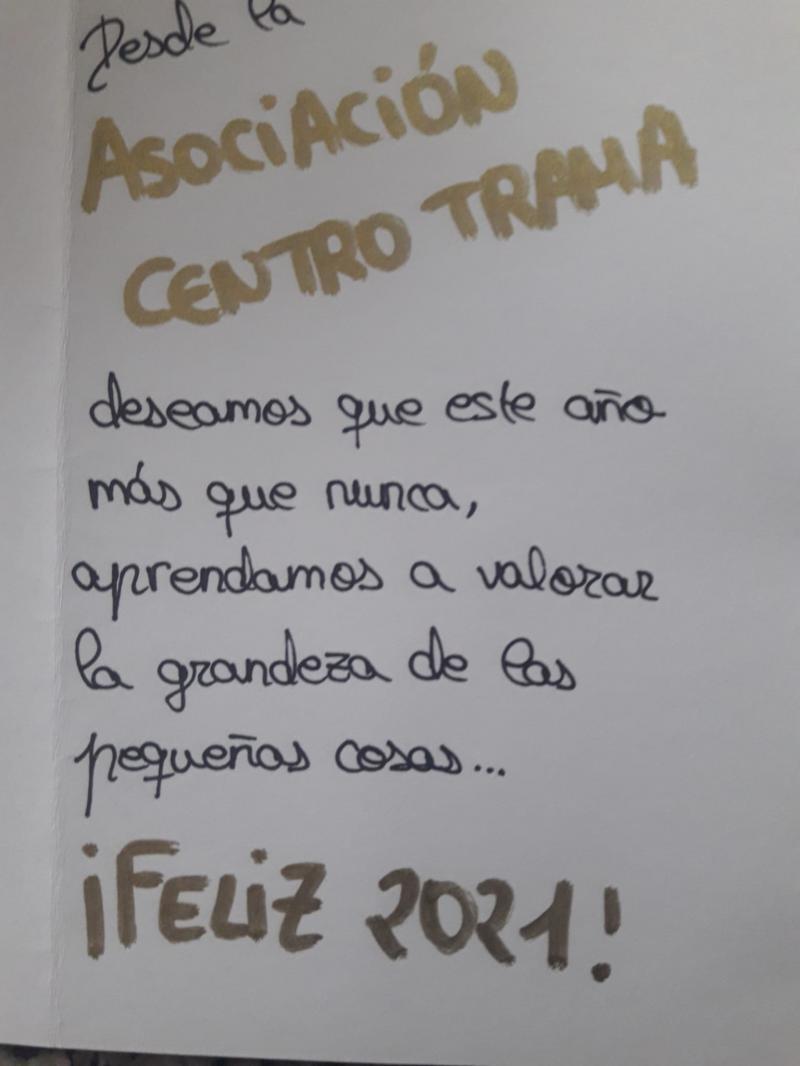 Desde la
ASOCIACIÓN
CENTRO TRAMA
deseamos que este año
más que nunca,
aprendamos a valorar
la grandeza de las
pequeñas cosas...
¡FELIZ 2021!